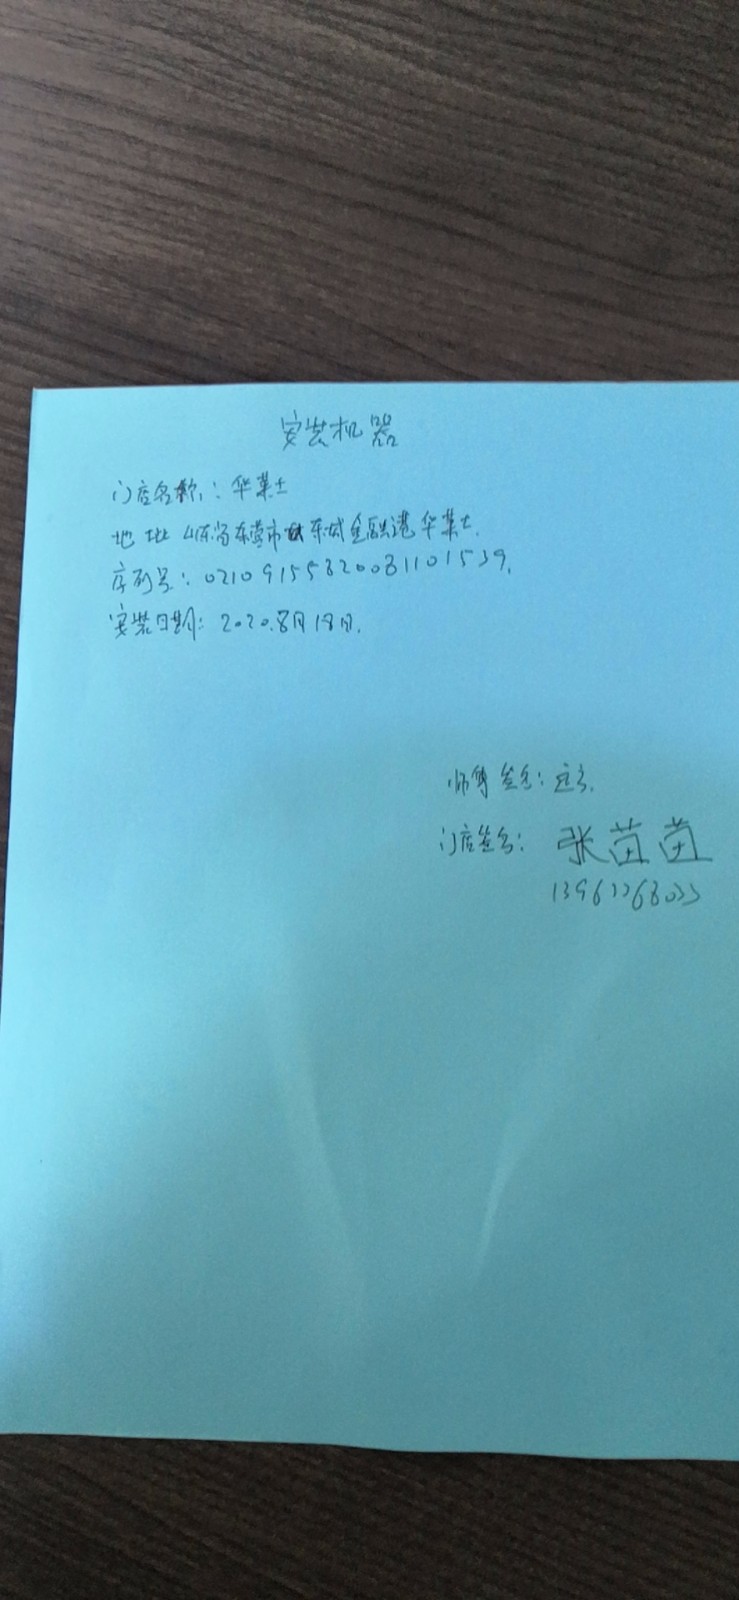 安装机器
门店名称：华莱士
地址 山东省东营市东城金融港华莱士.
序列号：02109155820081101539.
安装日期：2020.8月18日.
师傅签名：
门店签名：张苗苗